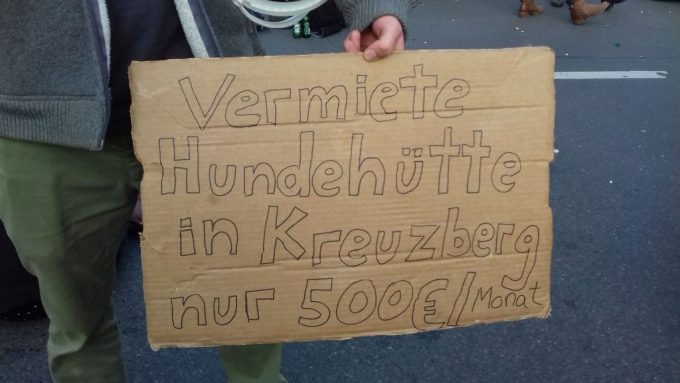 Vermiete
Hundehütte
in Kreuzberg
nur 500€/Monat